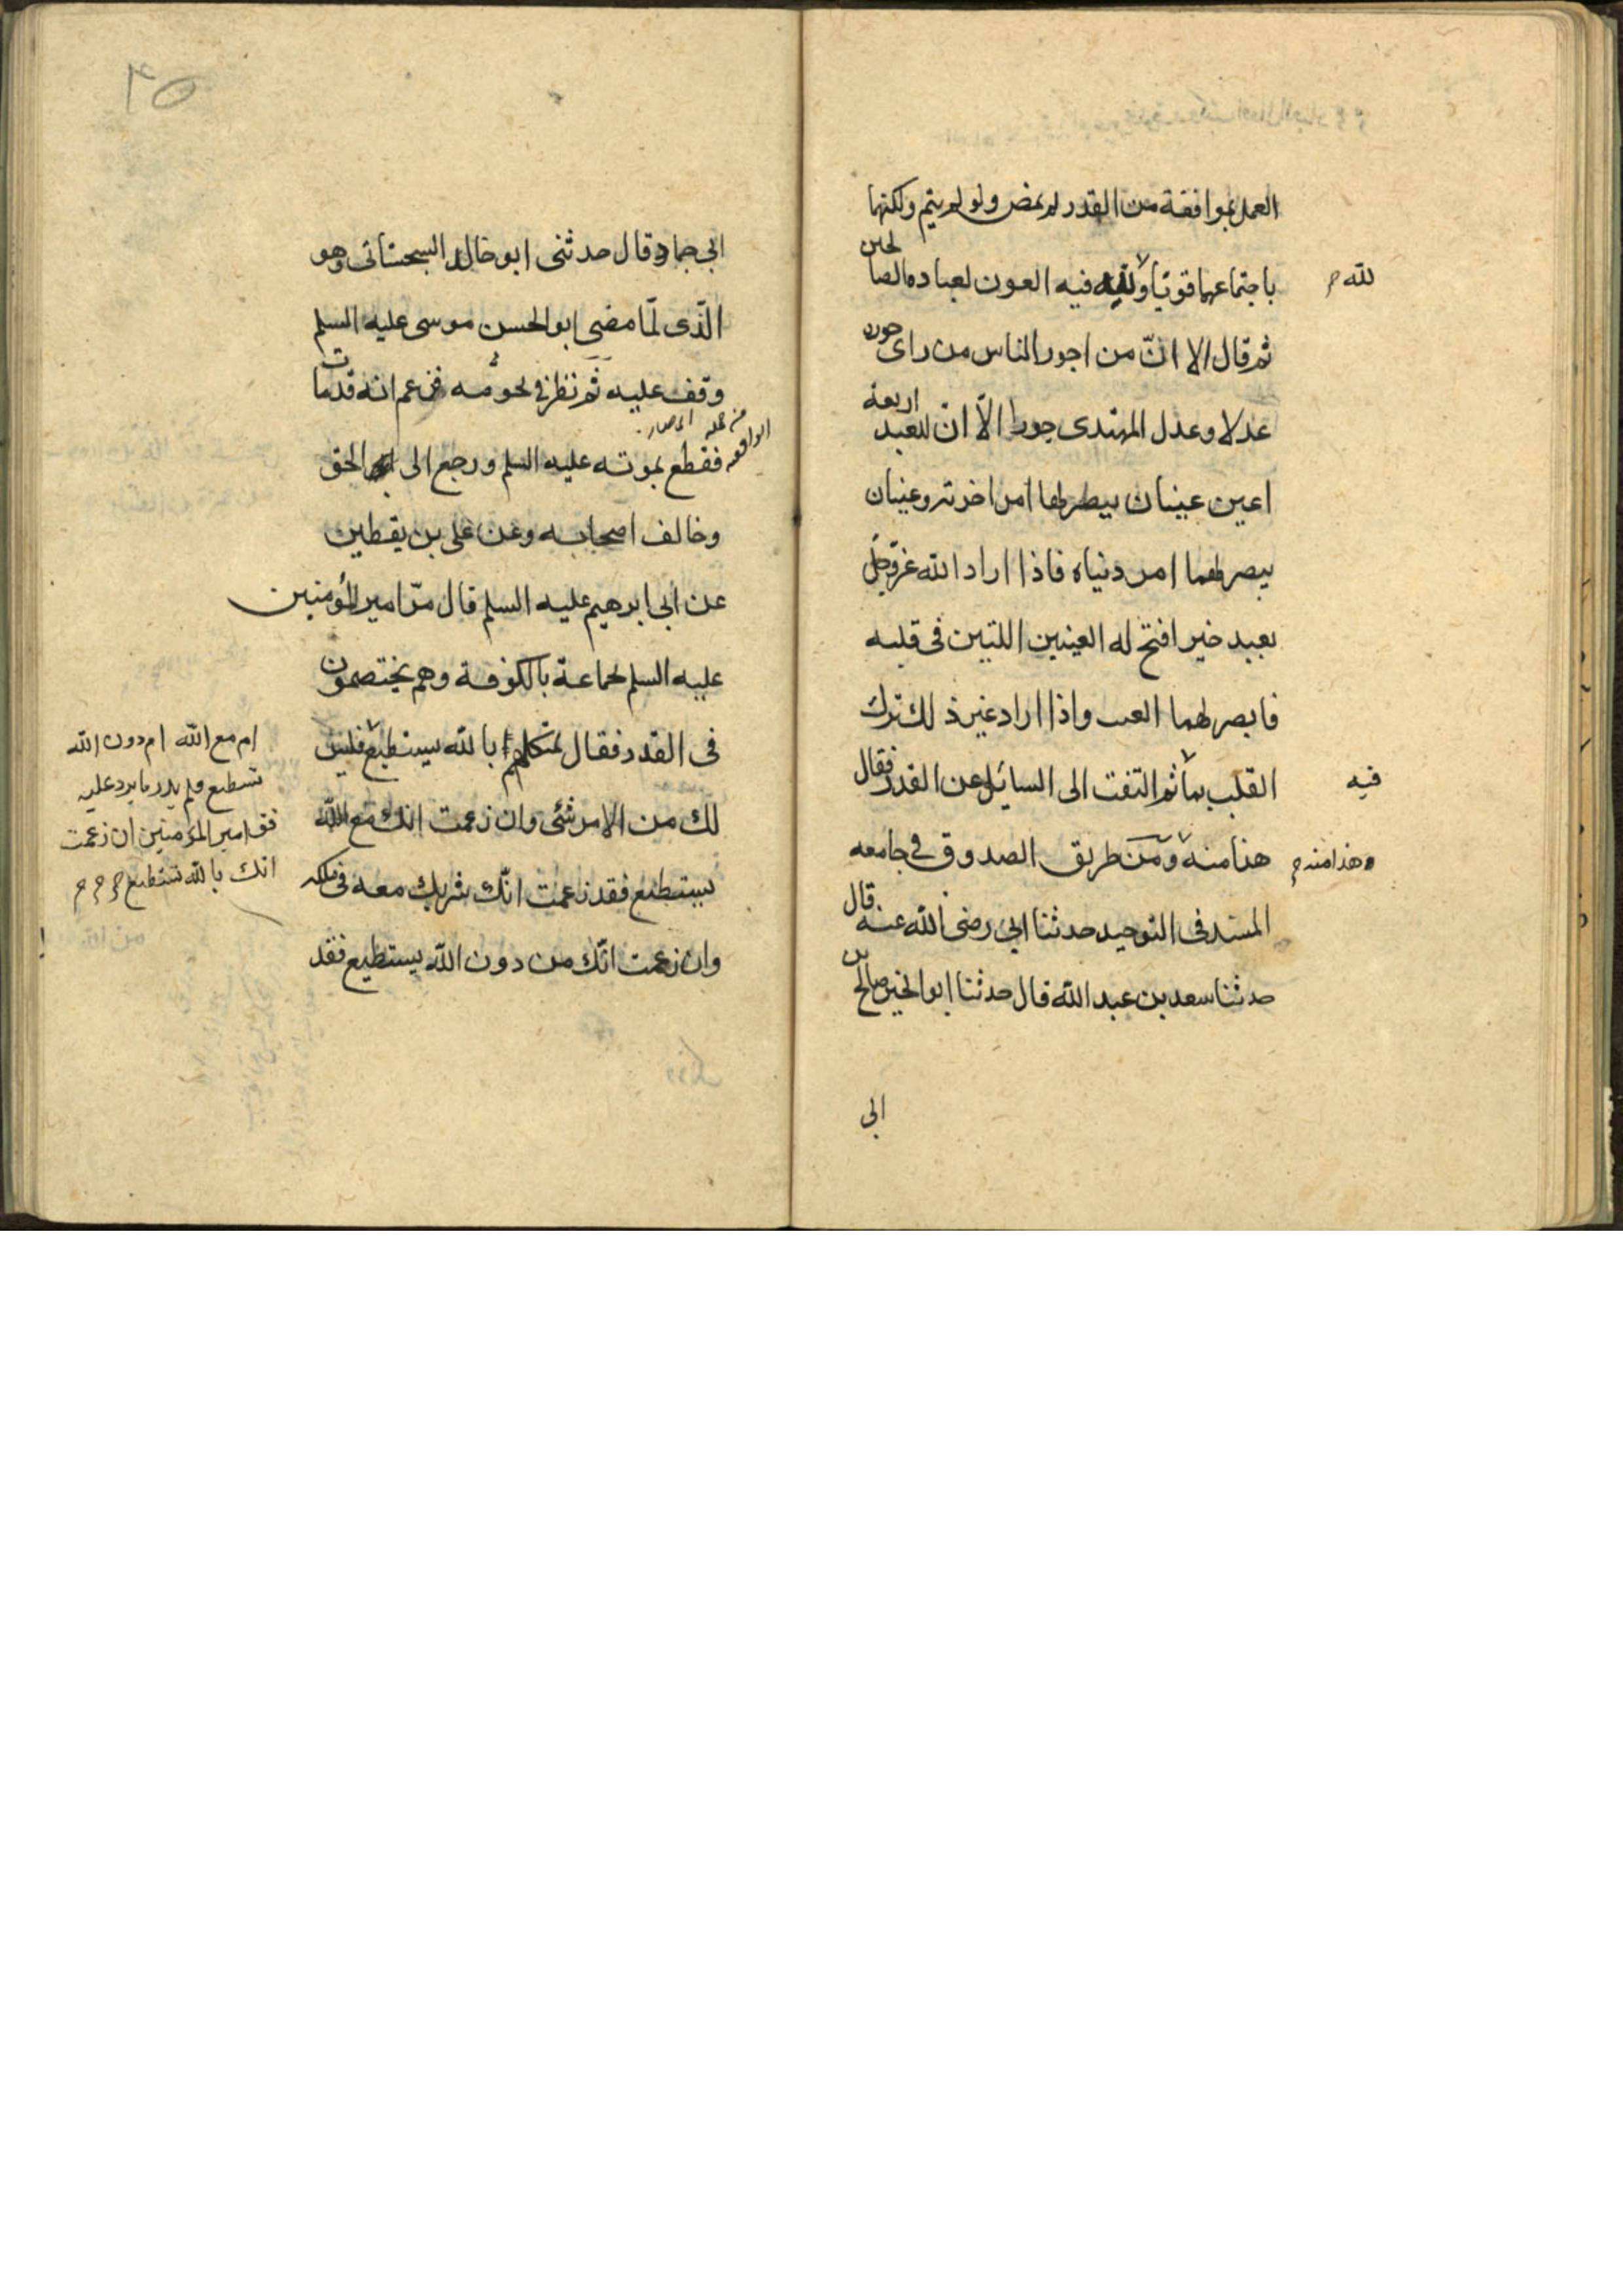 العمل بموافقة من القدر لم يمض ولو لم يتم ولكنها
باجتماعهما قويا و لله فيه العون لعباده الصالحين
لله
ثم قال الا انّ من اجور الناس من راى جوره
عدلا وعدل المهتدى جورا الا انّ للعبد اربعة
اعين عينان يبصر بهما امر اخرته وعينان
يبصر بهما امر دنياه فاذا اراد الله عز وجل
بعبد خير افتح له العينين اللتين فى قلبه
فابصر بهما العيب واذا اراد غير ذلك ترك
القلب بما ثم التفت الى السايل عن القدر فقال
فيه
هذا منه ومن طريق الصدوق في جامعه
وهذا منه
المسند فى التوحيد حدثنا ابى رضى الله عنه قال
حدثنا سعد بن عبد الله قال حدثنا ابو الخير صالح بن
ابى
٢٥
ابى حماد قال حدثنى ابو خالد السجستانى وهو
الّذى لمّا مضى ابو الحسن موسى عليه السلم
وقف عليه ثم نظر في نجومه فزعم انه قد مات
فقطع بموته عليه السلم ورجع الى الحق
وخالف اصحابه وعن على بن يقطين
عن ابى ابرهيم عليه السلم قال مرّ امير المؤمنين
عليه السلم لجماعة بالكوفة وهم يختصمون
فى القدر فقال لمتكلمهم ابا لله يستطيع فليس
لك من الامر شئ وان زعمت انك مع الله
يستطيع فقد زعمت انّك شريك معه فى ملكه
وان زعمت انّك من دون الله يستطيع فقد
ام مع الله ام دون الله
تستطيع فلم يدر ما يرد عليه
فق امير المؤمنين ان زعمت
انك بالله تستطيع